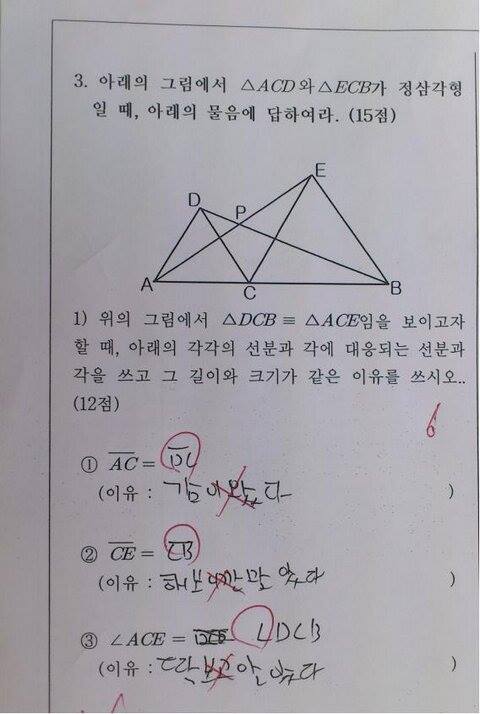 3. 아래의 그림에서 △ACD와 △ECB가 정삼각형
일 때, 아래의 물음에 답하여라. (15점)
E
D
P
A
C
B
1) 위의 그림에서 △DCB ≡ △ACE임을 보이고자
할 때, 아래의 각각의 선분과 각에 대응되는 선분과
각을 쓰고 그 길이와 크기가 같은 이유를 쓰시오..
(12점)
6
① AC = DC
(이유 : 감이 왔다 )
② CE = CB
(이유 : 해보나만말 있다 )
③ ∠ACE = ∠DCB
(이유 : 딱 보고 알 있다 )